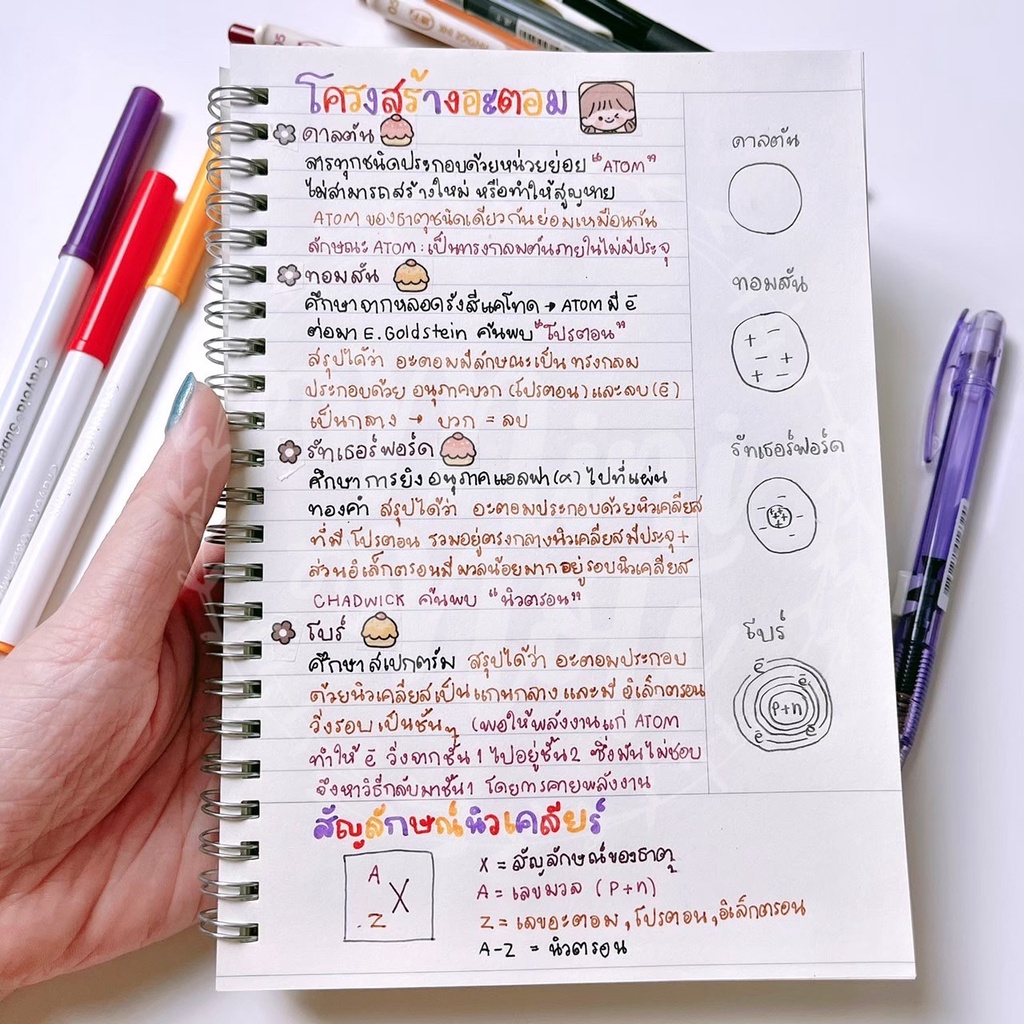 โครงสร้างอะตอม
ดาลตัน
สารทุกชนิดประกอบด้วยหน่วยย่อย "ATOM"
ไม่สามารถสร้างใหม่ หรือทำให้สูญหาย
ATOM ของธาตุชนิดเดียวกันย่อมเหมือนกัน
ลักษณะ ATOM : เป็นทรงกลมตันภายในไม่มีประจุ
ทอมสัน
ศึกษาจากหลอดรังสีแคโทด → ATOM มี ē
ต่อมา E. Goldstein ค้นพบ "โปรตอน"
สรุปได้ว่า อะตอมมีลักษณะเป็นทรงกลม
ประกอบด้วย อนุภาคบวก (โปรตอน) และลบ (ē)
เป็นกลาง → บวก = ลบ
รัทเธอร์ฟอร์ด
ศึกษาการยิงอนุภาคแอลฟา (α) ไปที่แผ่น
ทองคำ สรุปได้ว่า อะตอมประกอบด้วยนิวเคลียส
ที่มีโปรตอน รวมอยู่ตรงกลางนิวเคลียสมีประจุ +
ส่วนอิเล็กตรอนมีมวลน้อยมากอยู่รอบนิวเคลียส
CHADWICK ค้นพบ "นิวตรอน"
โบร์
ศึกษาสเปกตรัม สรุปได้ว่า อะตอมประกอบ
ด้วยนิวเคลียสเป็นแกนกลาง และมี อิเล็กตรอน
วิ่งรอบเป็นชั้นๆ (พอให้พลังงานแก่ ATOM
ทำให้ ē วิ่งจากชั้น 1 ไปอยู่ชั้น 2 ซึ่งมันไม่ชอบ
จึงหาวิธีกลับมาชั้น 1 โดยการคายพลังงาน
ดาลตัน
ทอมสัน
+ −
− +
+ −
รัทเธอร์ฟอร์ด
โบร์
ē ē
p+n
ē ē
สัญลักษณ์นิวเคลียร์
A
X
Z
X = สัญลักษณ์ของธาตุ
A = เลขมวล (p+n)
Z = เลขอะตอม, โปรตอน, อิเล็กตรอน
A-Z = นิวตรอน